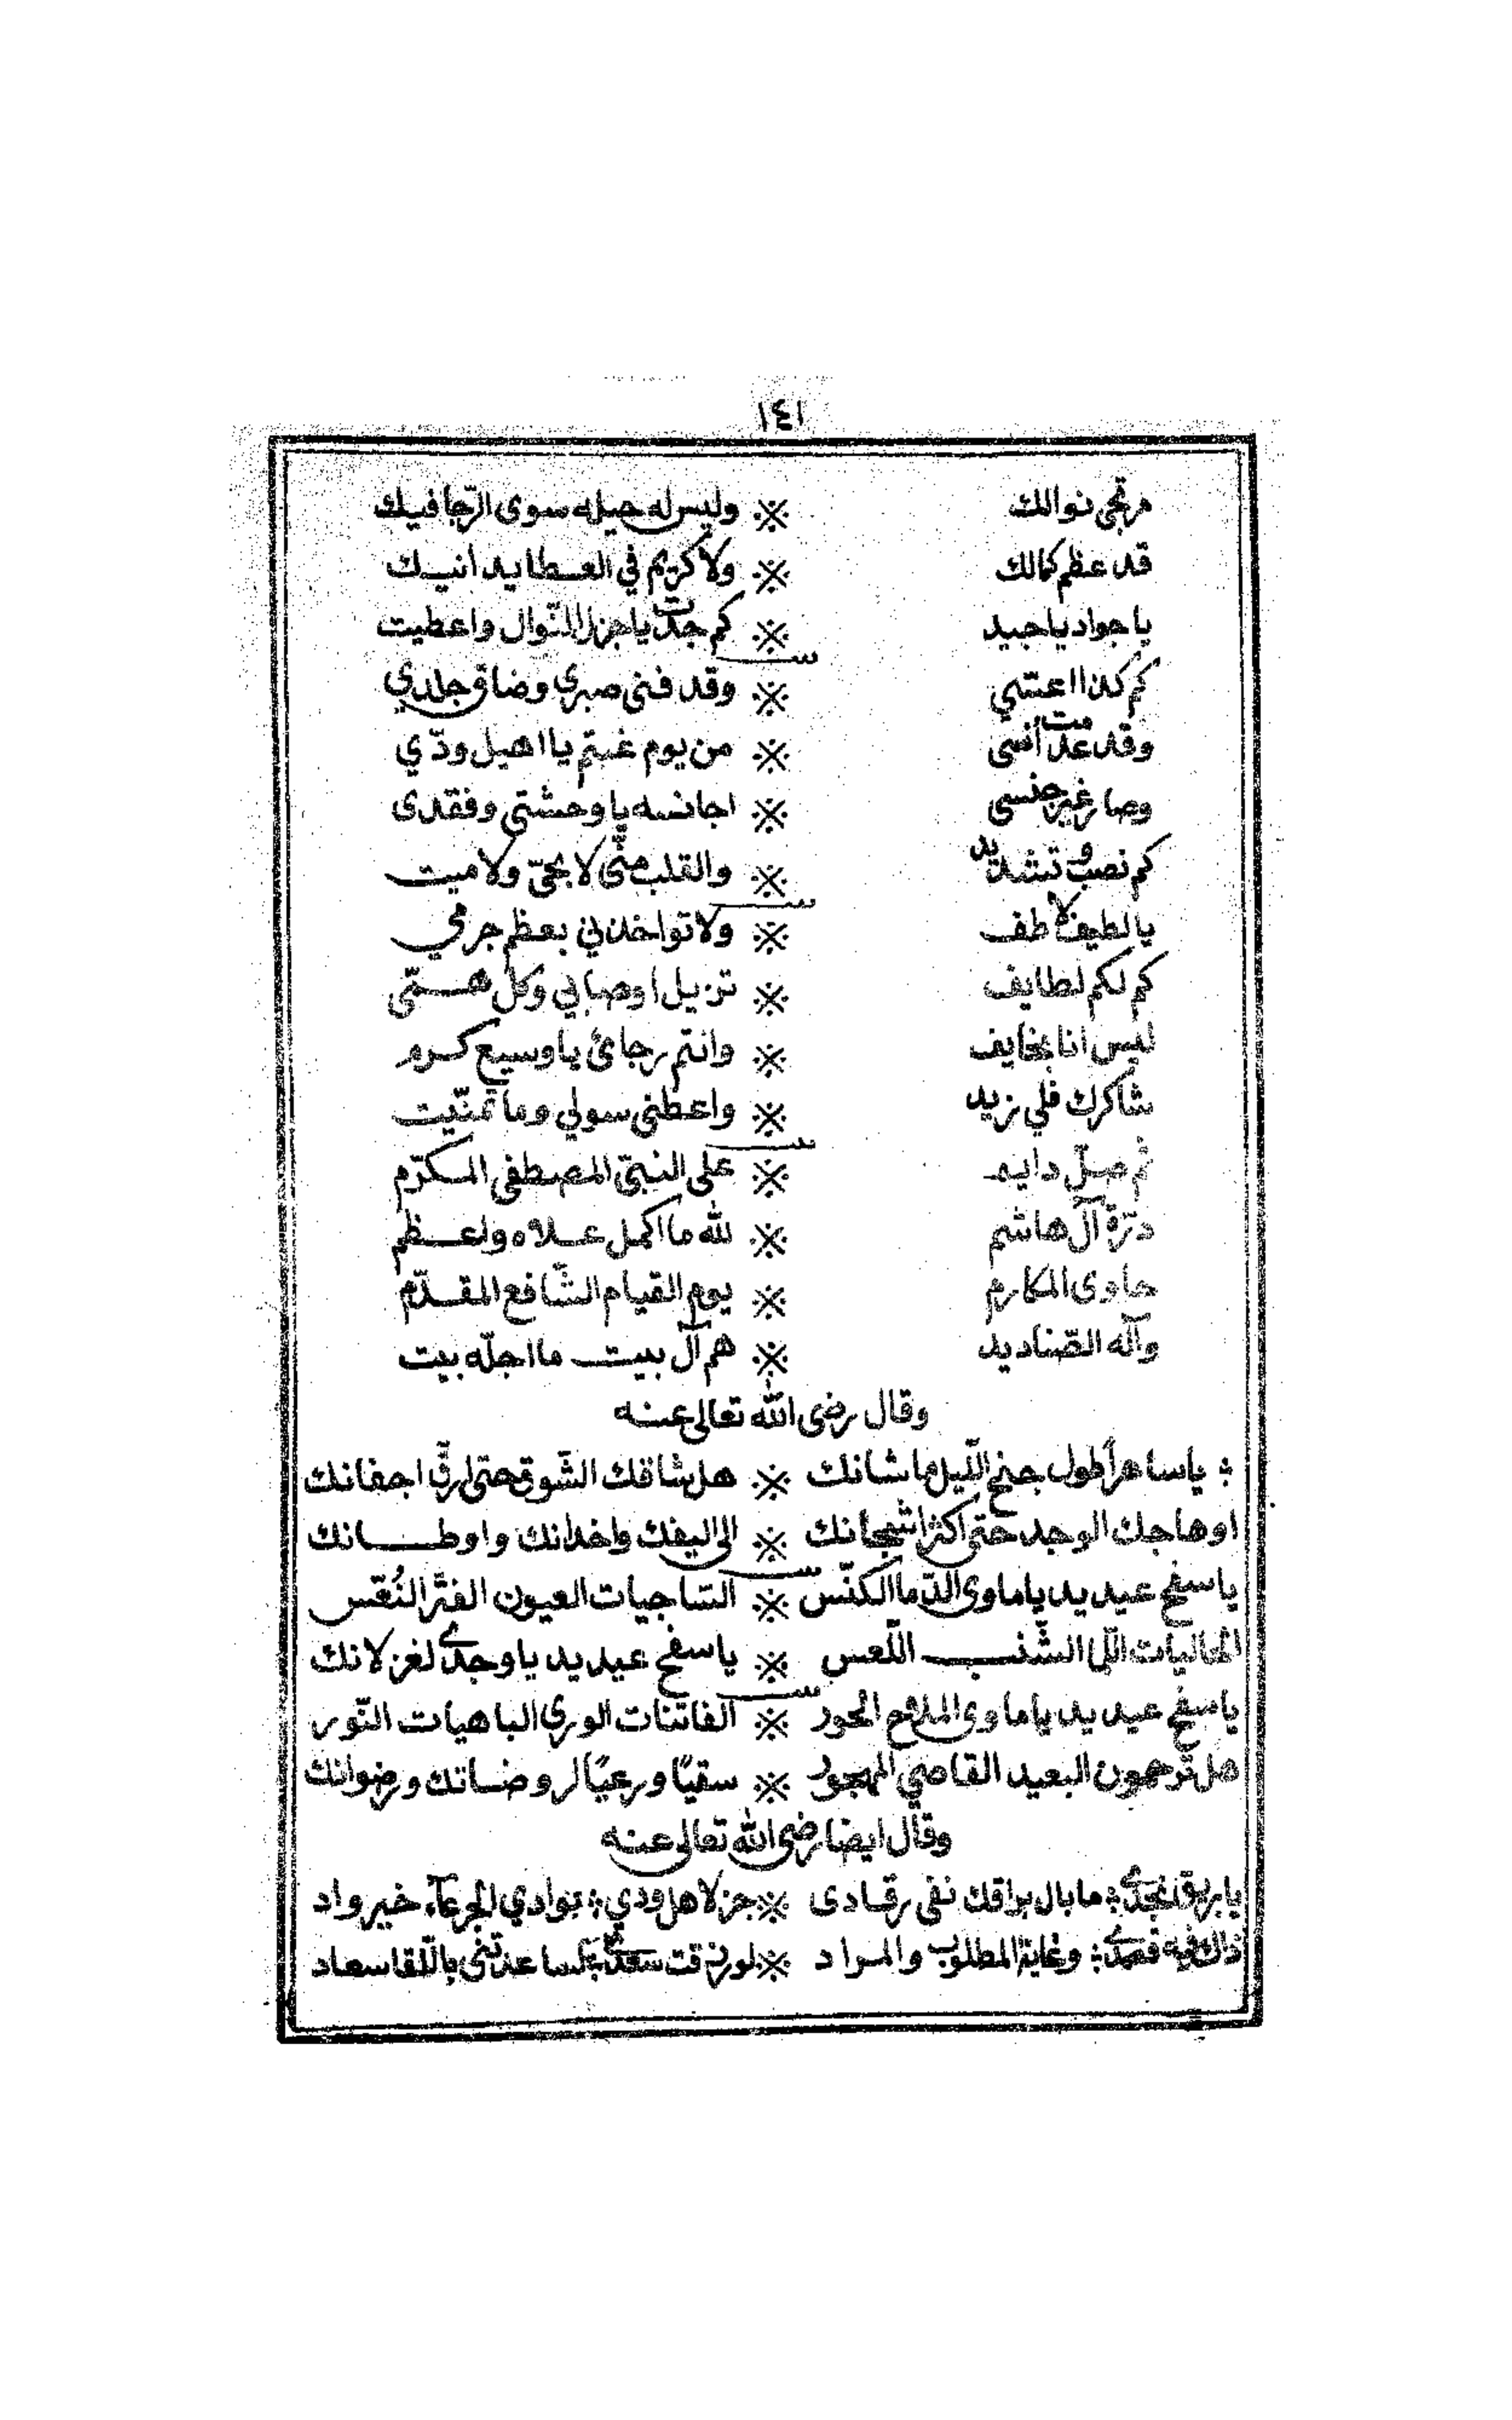 ١٤١
مرتجى نوالك ※ وليس له حيله سوى الرّجا فيك
قد عظم كمالك ※ ولا كريم في العطا يدانيك
يا جواد يا مجيد ※ كم جدت يا جزل النّوال واعطيت
كم كذا اعتسي ※ وقد فنى صبري وضاق جلدي
وقد عدمت أنسى ※ من يوم غبتم يا اهيل ودّي
وصار غير جنسى ※ اجانسه يا وحشتي وفقدى
كم نصب وتشديد ※ والقلب منّى لا بحيّ ولا ميت
يا لطيف لاطف ※ ولا تواخذني بعظم جرمي
كم لكم لطايف ※ تزيل اوصابي وكل همّى
ليس انا بخايف ※ وانتم رجائ يا وسيع كرم
شاكرك فلي زيد ※ واعطنى سولي وما تمنّيت
ثم صلّ دايم ※ على النبيّ المصطفى المكرّم
درّة آل هاشم ※ لله ما اكمل علاه واعظم
حاوى المكارم ※ يوم القيام الشّافع المقدّم
وآله الصّناديد ※ هم آل بيت ما اجلّه بيت
وقال رضى الله تعالى عنه
يا ساهراً طول جنح اللّيل ما شانك ※ هل شاقك الشّوق حتى ارّق اجفانك
اوهاجك الوجد حتى اكثر اشجانك ※ الى اليفك واخدانك واوطانك
يا سفح عيديد يا ماوى الدّما الكنّس ※ السّاجيات العيون الفتّر النُعّس
الحاليات اللّى الشّنب اللّعس ※ يا سفح عيديد يا وجدى لغزلانك
يا سفح عيديد يا ماوى الملاح الحور ※ الفاتنات الورى الباهيات النّور
هل ترحمون البعيد القاصي المهجور ※ سقيًا ورعيًا لروضاتك ورضوانك
وقال ايضا رضى الله تعالى عنه
يا بريق نجدى ؛ ما بال براقك نفى رقادى ※ جز لاهل ودي ؛ بوادي الجرعآء خير واد
ذاك فيه قصدى ؛ وغاية المطلوب والمراد ※ لو رزقت سعدى ؛ لساعدتنى باللّقا سعاد